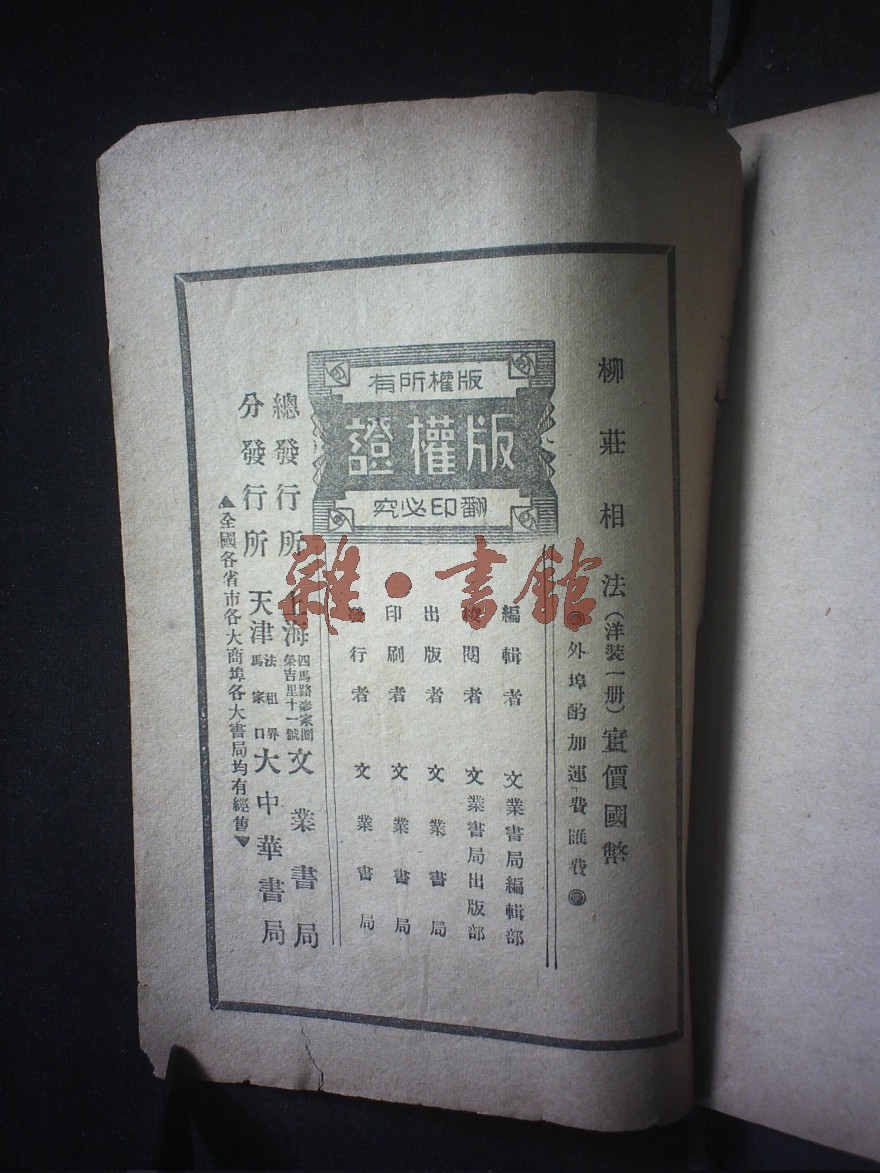 柳莊相法(洋裝一册)實價國幣
◉外埠酌加運費匯費◉
版權所有
版權證
翻印必究
編輯者 文業書局編輯部
校閱者 文業書局出版部
出版者 文業書局
印刷者 文業書局
發行者 文業書局
總發行所 上海四馬路彭家園榮吉里十一號 文業書局
分發行所 天津法租界馬家口 大中華書局
▲全國各省市各大商埠各大書局均有經售▼
雜·書館